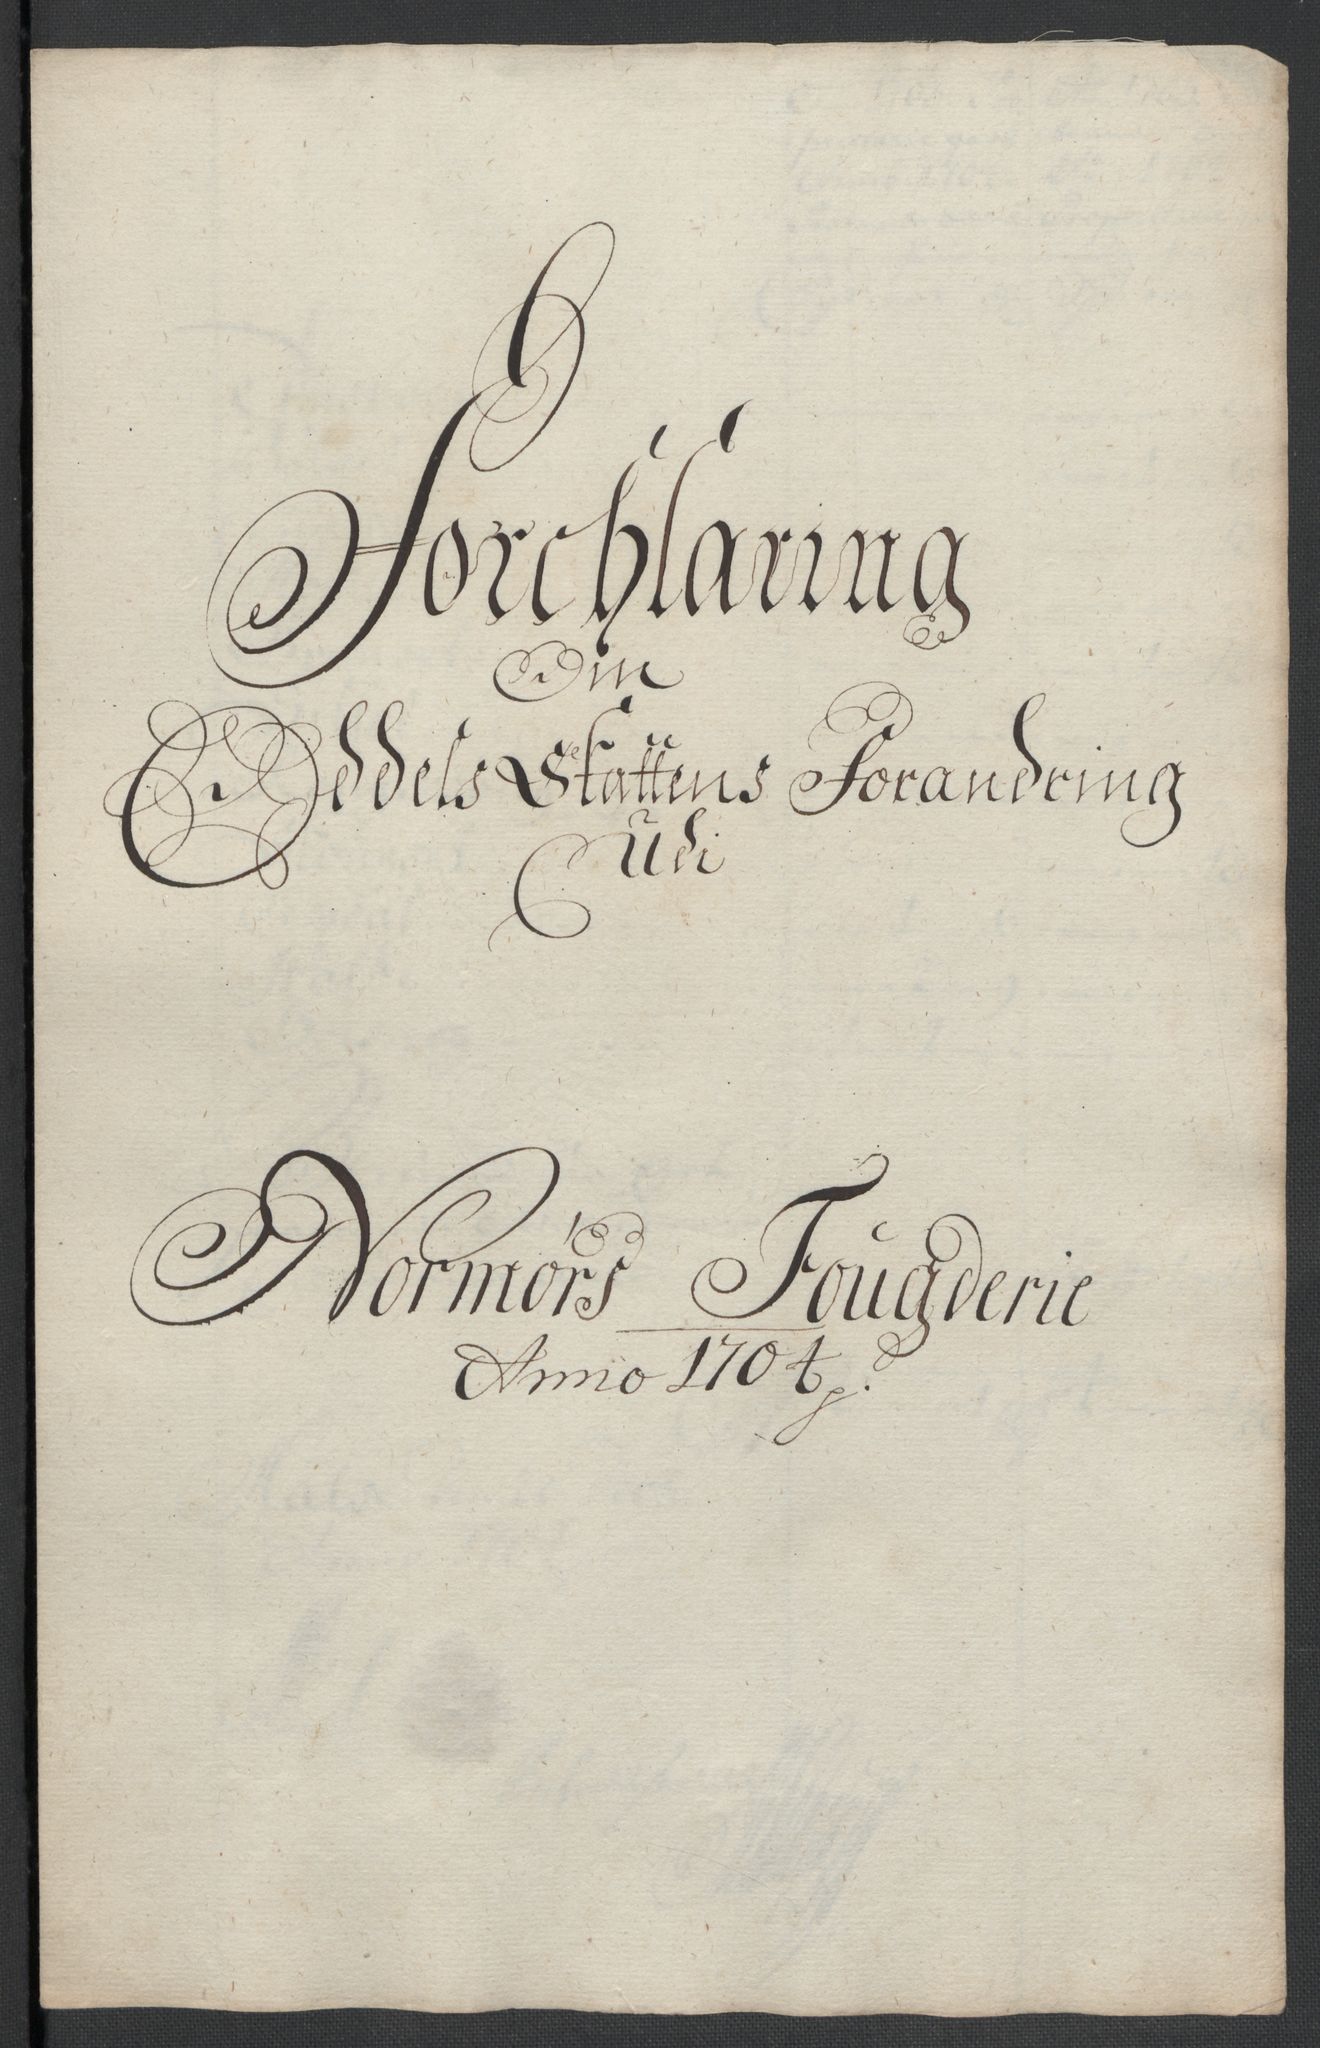 Forchlaring
Om
Oddels Skattens Forandring
Udi
Normørs Fougderie
Anno 1704